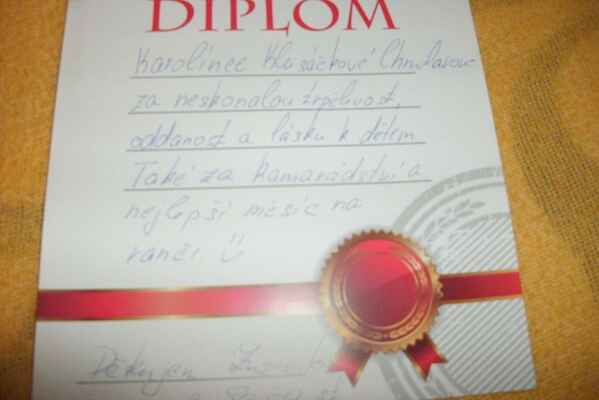 DIPLOM
Karolínce Klusáčkové
za neskonalou trpělivost,
oddanost a lásku k dětem
Také za kamarádství a
nejlepší měsíc na
ranči Ü
Děkujem